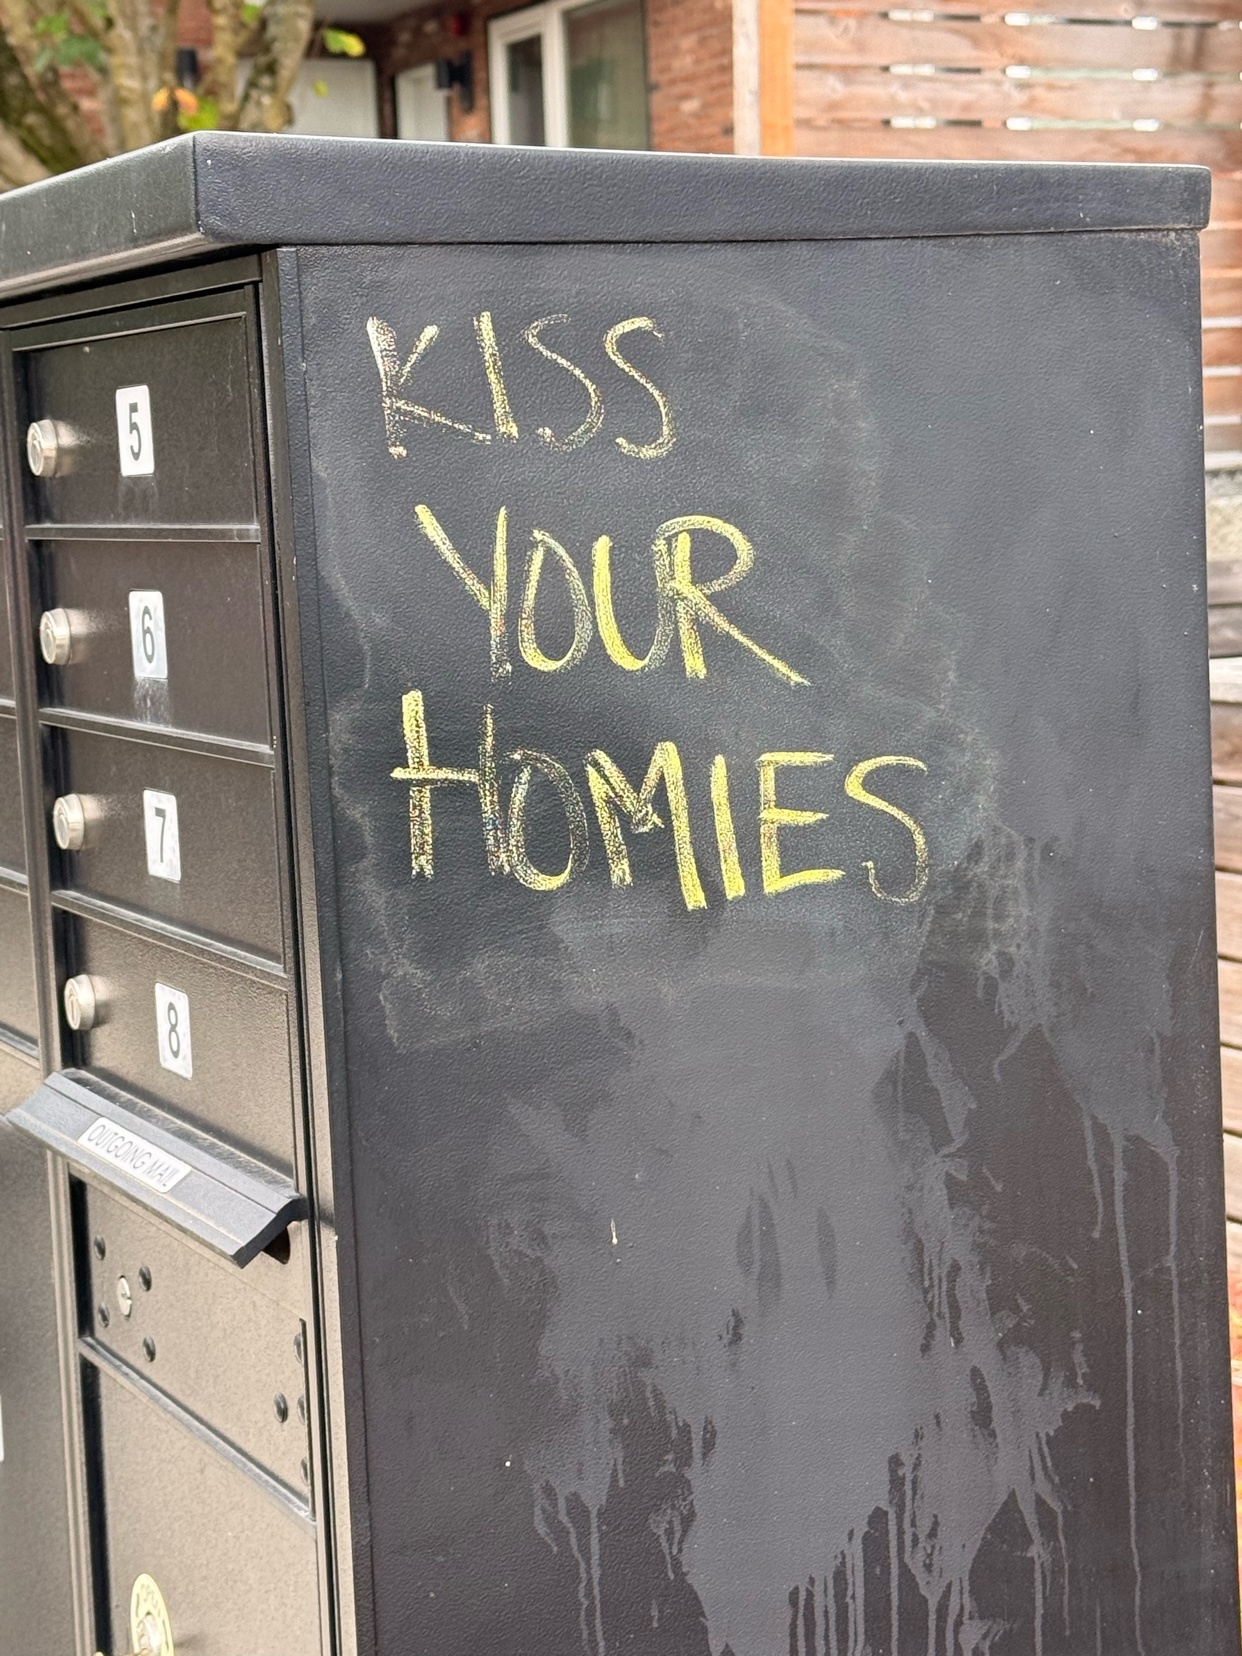 KISS
YOUR
HOMIES
5
6
7
8
OUTGOING MAIL